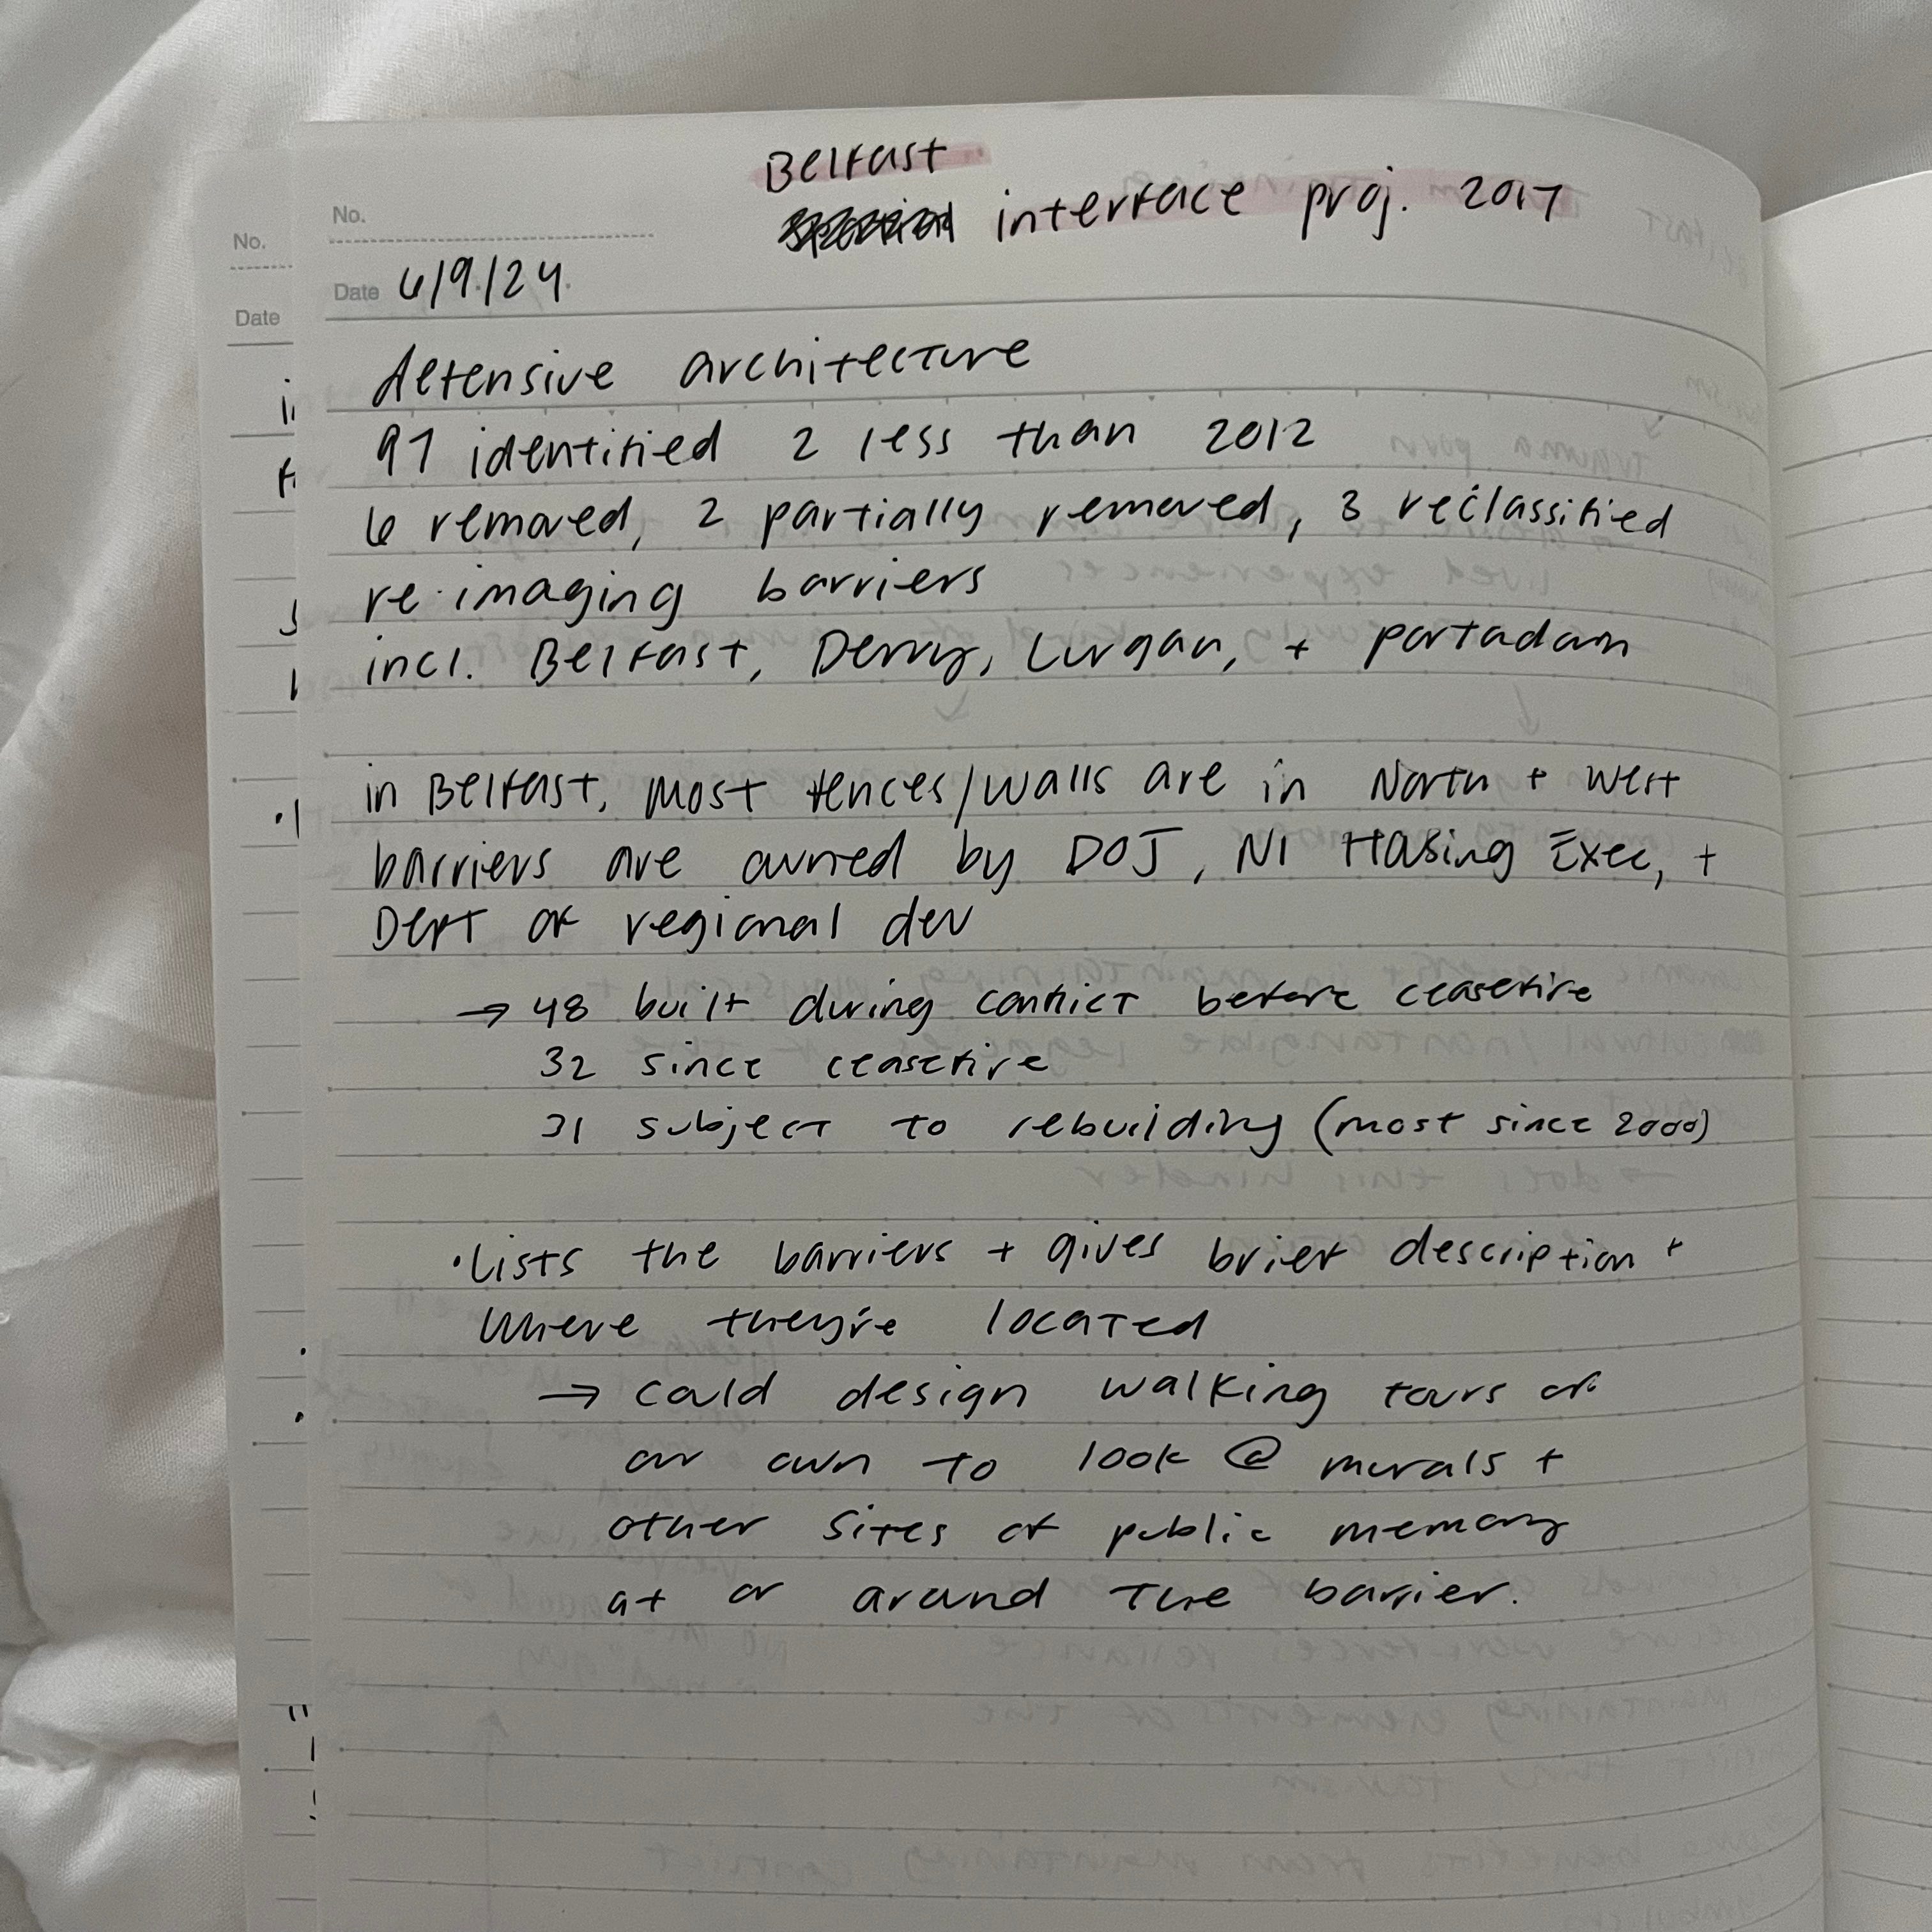 Belfast
interface proj. 2017
No.
No.
Date 6/9/24.
Date
defensive architecture
97 identified 2 less than 2012
6 removed, 2 partially removed, 3 reclassified
re-imaging barriers
incl. Belfast, Derry, Lurgan, + portadown
in Belfast, most fences/walls are in North + West
barriers are owned by DOJ, NI Housing Exec, +
Dept of regional dev
→ 48 built during conflict before ceasefire
32 since ceasefire
31 subject to rebuilding (most since 2000)
• Lists the barriers + gives brief description +
where they're located
→ could design walking tours of
our own to look @ murals +
other sites of public memory
at or around the barrier.